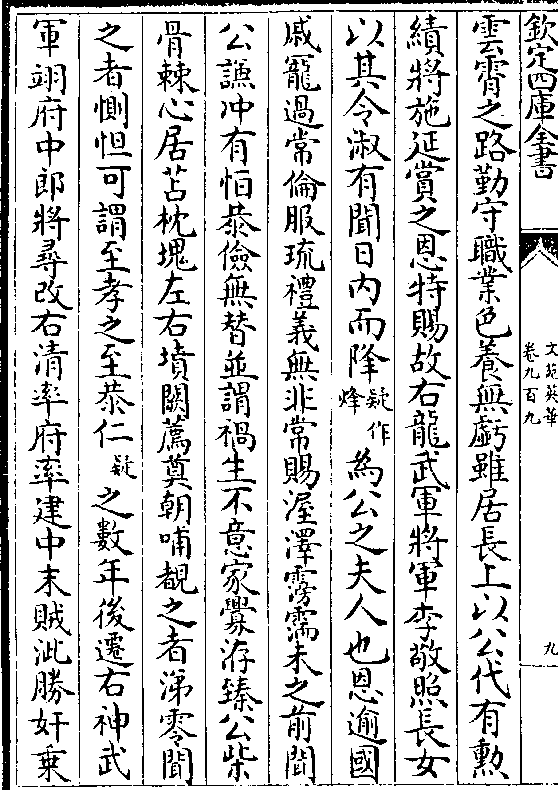 欽定四庫全書
文苑英華
卷九百九
九
雲霄之路勤守職業色養無虧雖居長上以公代有勲
績將施延賞之恩特賜故右龍武軍將軍李敬照長女
以其令淑有聞日內而降疑作烽為公之夫人也恩逾國
戚寵過常倫服琉禮義無非常賜渥澤霶霈未之前聞
公謙冲有怕恭儉無替並謂禍生不意家釁洊臻公柴
骨棘心居苫枕塊左右墳闕薦奠朝哺覩之者涕零聞
之者惻怛可謂至孝之至恭仁疑之數年後遷右神武
軍翊府中郎將尋改右清率府率建中末賊泚勝奸乗